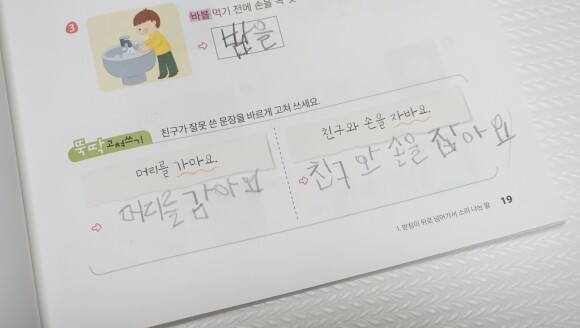 3
바블 먹기 전에 손을
밥을
뚝딱 고쳐쓰기
친구가 잘못 쓴 문장을 바르게 고쳐 쓰세요.
머리를 가마요.
머리를 감아요
친구와 손을 자바요.
친구와 손을 잡아요
1. 받침이 뒤로 넘어가서 소리 나는 말
19